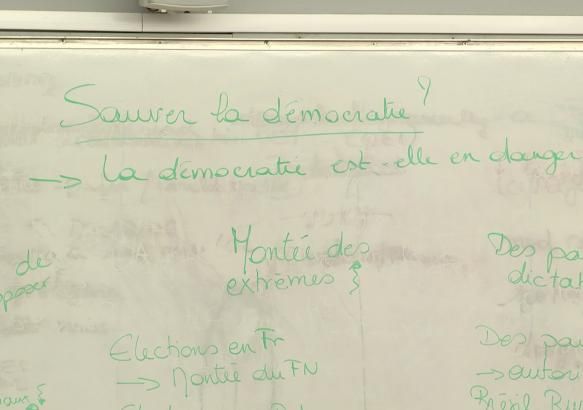 Sauver la démocratie ?
→ La démocratie est-elle en danger
Montée des
extrêmes
Des pa
dictat
de
poser
Elections en Fr
→ Montée du FN
Des pou
→ autori
Brésil